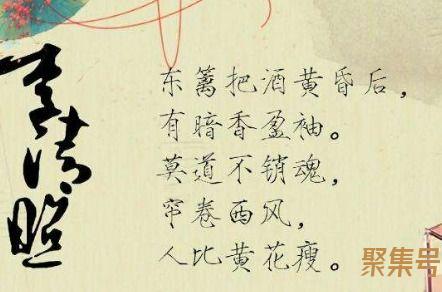 李清照
东篱把酒黄昏后，
有暗香盈袖。
莫道不销魂，
帘卷西风，
人比黄花瘦。
聚集号